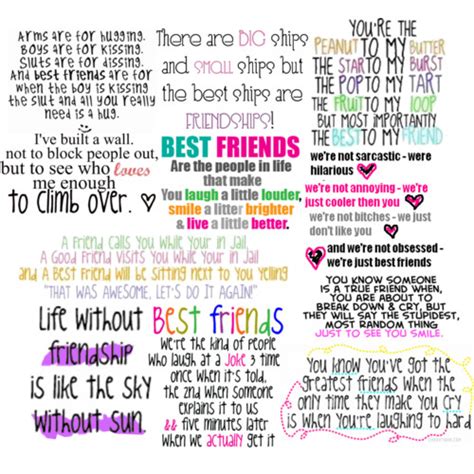 Arms are for hugging.
Boys are for kissing.
Sluts are for dissing.
And best friends are for
when the boy is kissing
the slut and all you really
need is a hug.
There are BIG ships
and SMALL ships but
the best ships are
FRIENDSHIPS!
YOU'RE THE
PEANUT TO MY BUTTER
THE STAR TO MY BURST
THE POP TO MY TART
THE FRUIT TO MY LOOP
BUT MOST IMPORTANTLY
THE BEST TO MY FRIEND
I've built a wall.
not to block people out,
but to see who loves
me enough
to climb over.
BEST FRIENDS
Are the people in life
that make
You laugh a little louder,
smile a litter brighter
& live a little better.
we're not sarcastic - were
hilarious
we're not annoying - we're
just cooler then you
we're not bitches - we just
don't like you
and we're not obsessed -
we're just best friends
A Friend calls You While Your in Jail
A Good Friend visits You While Your in Jail
and A Best Friend will Be Sitting next to You Yelling
"THAT WAS AWESOME, LET'S DO IT AGAIN!"
YOU KNOW SOMEONE
IS A TRUE FRIEND WHEN,
YOU ARE ABOUT TO
BREAK DOWN & CRY, BUT
THEY WILL SAY THE STUPIDEST,
MOST RANDOM THING
JUST TO SEE YOU SMILE.
Life without
friendship
is like the sky
without sun.
Best friends
We're the kind of people
who laugh at a joke 3 time
once when it's told,
the 2nd when someone
explains it to us
&& five minutes later
when we actually get it
You know you've got the
greatest friends when the
only time they make you cry
is when you're laughing to hard